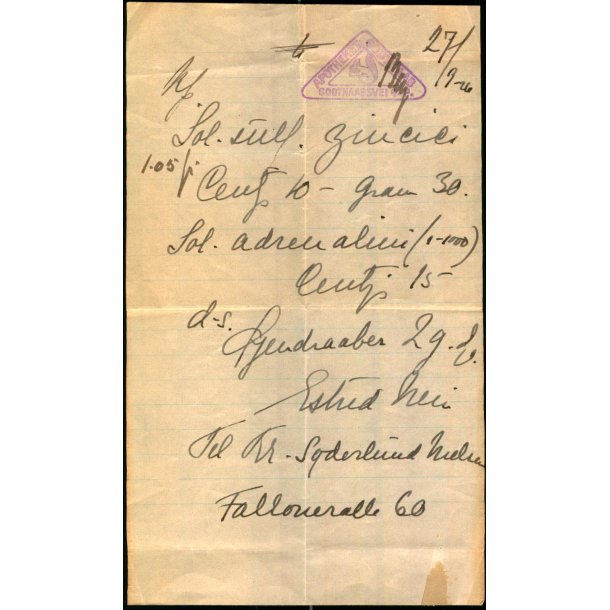 27/
9-26
APOTHEKER
GODTHAABSVEI
Rp
Sol. sulf. zincici
1.05
Centg 10 - gram 30.
Sol. adrenalini (1-1000)
Centg 15
d.s. Øjendraaber 2 g. d.
Estrid
Til Fr. Syderlund Nielsen
Falloneralle 60